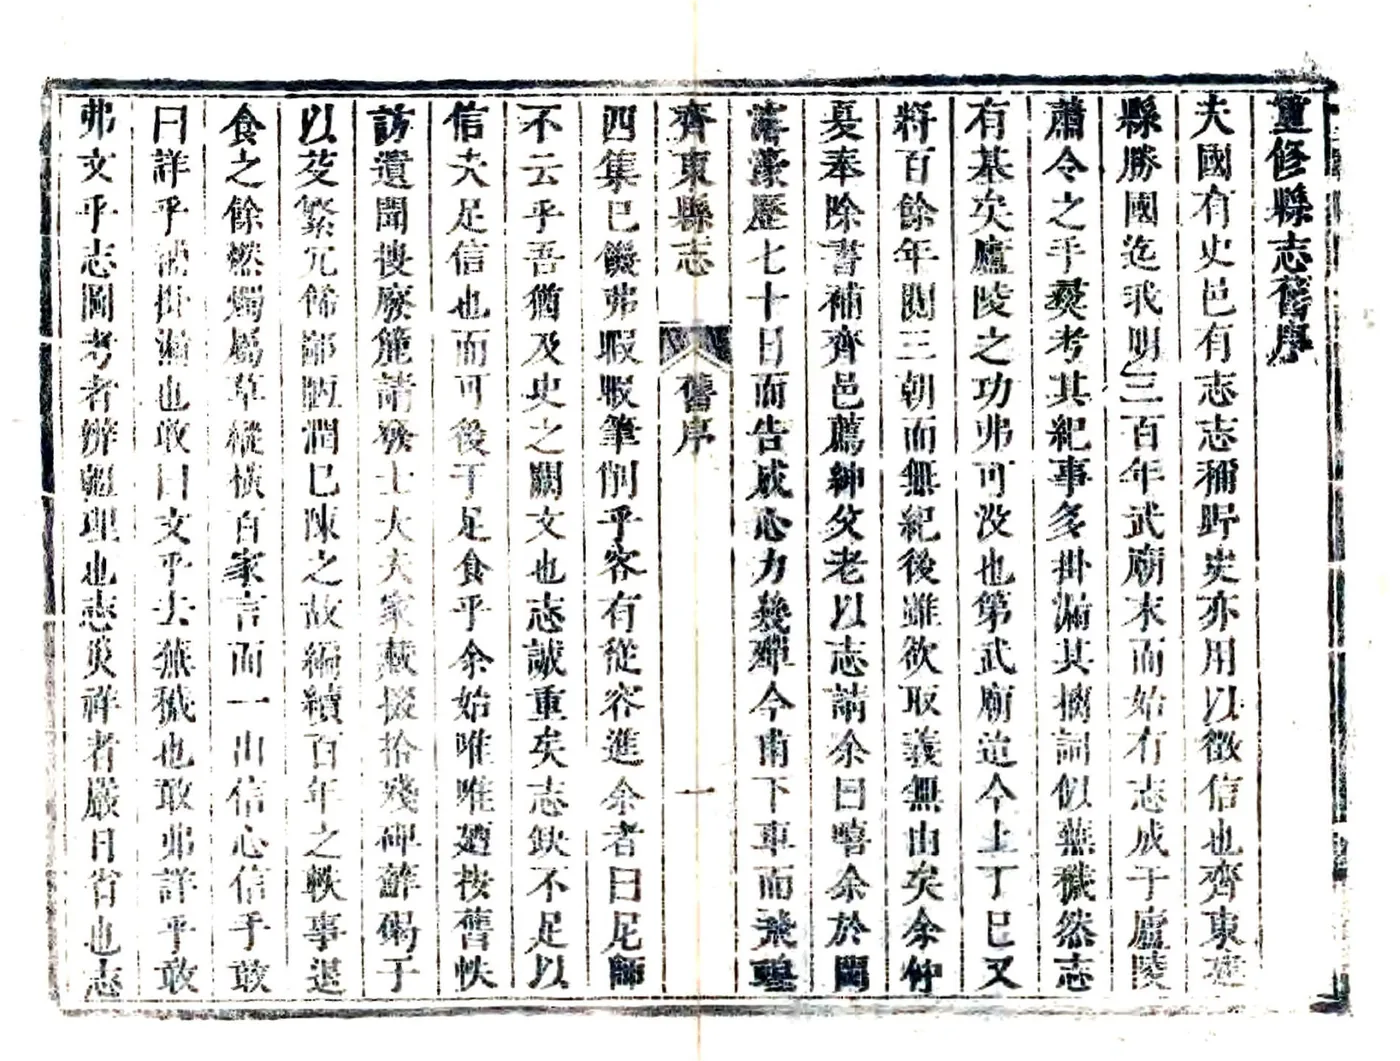 重修縣志舊序
夫國有史邑有志志稱野史亦用以徵信也齊東建
縣勝國迄我明三百年武廟末而始有志成于廬陵
蕭令之手爰考其紀事多掛漏其摛詞似蕪穢然志
有基矣廬陵之功弗可沒也第武廟迨今上丁巳又
將百餘年閱三朝而無紀後雖欲取義無由矣余仲
夏奉除書補齊邑薦紳父老以志請余曰嘻余於閩
漳濠歷七十日而告成心力幾殫今甫下車而飛
齊東縣志
舊序
一
四集已饑弗暇暇筆削乎客有從容進余者曰尼師
不云乎吾猶及史之闕文也志誠重矣志缺不足以
信夫足信也而可後于足食乎余始唯唯廼按舊帙
訪遺聞搜廢簏請癸士大夫家藏掇拾殘碑蘚碣于
以芟繁冗飾鄙俚潤已陳之故編續百年之軼事退
食之餘燃燭屬草縱橫百家言而一出信心信乎敢
曰詳乎掛漏也敢曰文乎去蕪穢也敢弗詳乎敢
弗文乎志圖考者辨疆理也志災祥者嚴日省也志